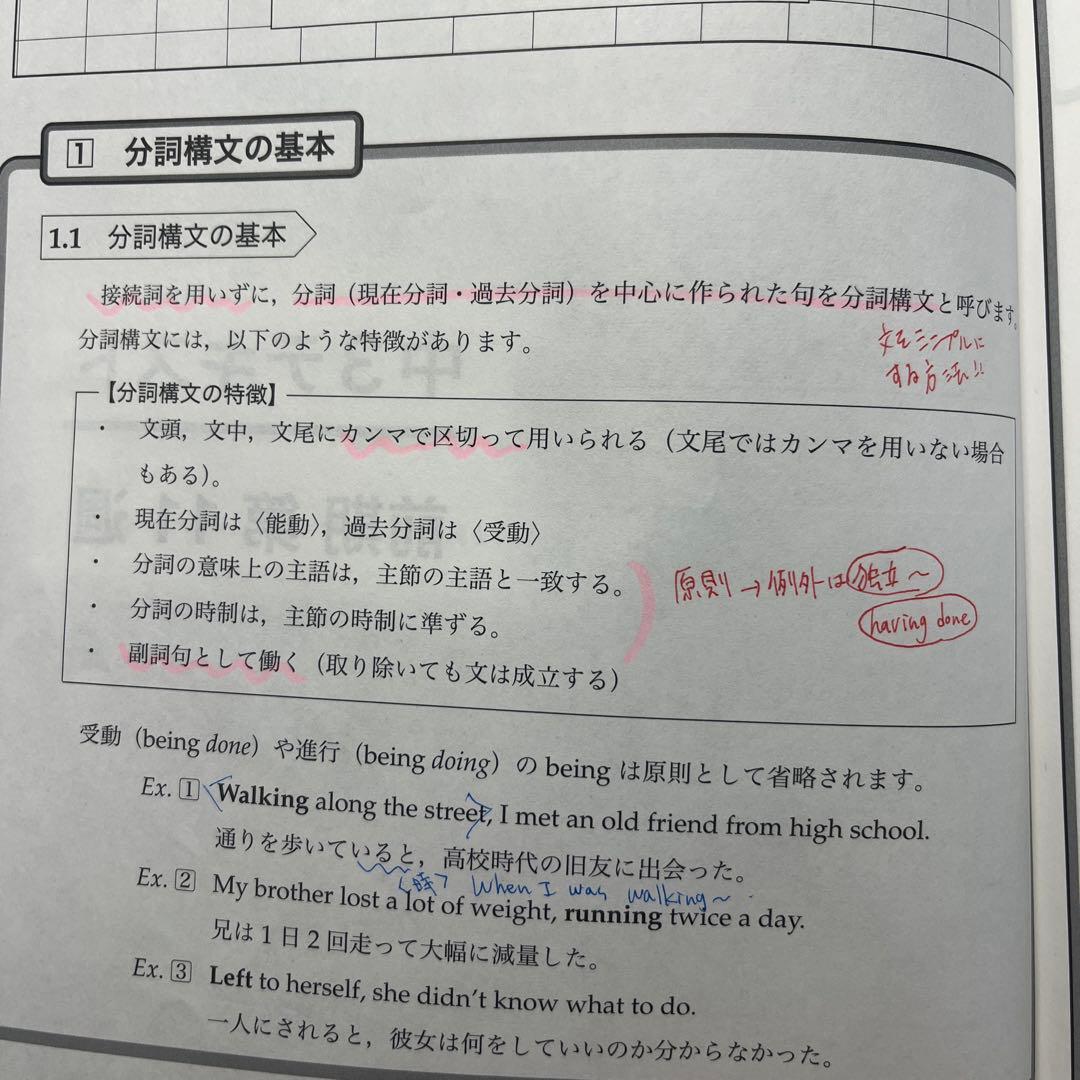 1 分詞構文の基本
1.1 分詞構文の基本
接続詞を用いずに，分詞（現在分詞・過去分詞）を中心に作られた句を分詞構文と呼びます。
分詞構文には，以下のような特徴があります。
文をシンプルに
する方法!!
【分詞構文の特徴】
・ 文頭，文中，文尾にカンマで区切って用いられる（文尾ではカンマを用いない場合
もある）。
・ 現在分詞は〈能動〉，過去分詞は〈受動〉
・ 分詞の意味上の主語は，主節の主語と一致する。
原則→例外は独立〜
・ 分詞の時制は，主節の時制に準ずる。
having done
・ 副詞句として働く（取り除いても文は成立する）
受動（being done）や進行（being doing）の being は原則として省略されます。
Ex. 1 Walking along the street, I met an old friend from high school.
通りを歩いていると，高校時代の旧友に出会った。
〈時〉 When I was walking〜
Ex. 2 My brother lost a lot of weight, running twice a day.
兄は1日2回走って大幅に減量した。
Ex. 3 Left to herself, she didn't know what to do.
一人にされると，彼女は何をしていいのか分からなかった。